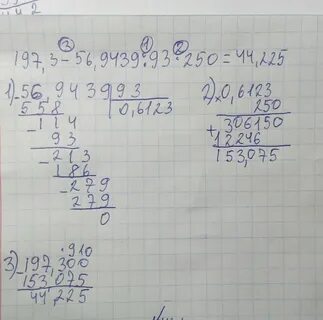 ③ ① ②
197,3-56,9439:93·250=44,225
1) 56,9439 | 93
558 | 0,6123
-114
93
-213
186
-279
279
0
2) ×0,6123
250
+306150
12246
153,075
3) -197,300
153,075
44,225